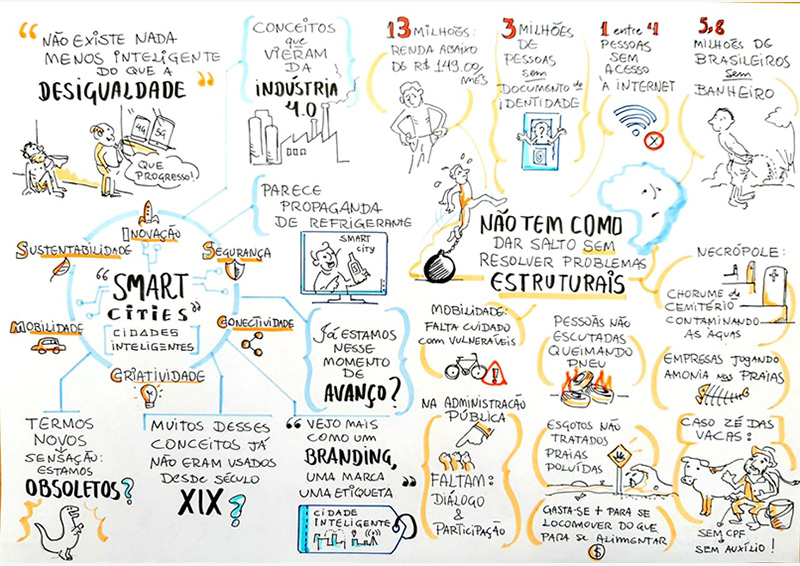 “ NÃO EXISTE NADA
MENOS INTELIGENTE
DO QUE A
DESIGUALDADE ”
4G
5G
QUE
PROGRESSO!
CONCEITOS
que
VIERAM
DA
INDÚSTRIA
4.0
13 MILHÕES:
RENDA ABAIXO
DE R$ 149,00/
MÊS
3 MILHÕES
DE
PESSOAS
sem
DOCUMENTO de
IDENTIDADE
?
1 entre 4
PESSOAS
SEM
ACESSO
À INTERNET
X
5,8
MILHÕES DE
BRASILEIROS
sem
BANHEIRO
PARECE
PROPAGANDA
DE REFRIGERANTE
SMART
city
INOVAÇÃO
SUSTENTABILIDADE
SEGURANÇA
“ SMART ”
CITIES
[CIDADES
INTELIGENTES]
MOBILIDADE
CONECTIVIDADE
CRIATIVIDADE
NÃO TEM COMO
DAR SALTO SEM
RESOLVER PROBLEMAS
ESTRUTURAIS
NECRÓPOLE:
CHORUME de
CEMITÉRIO
CONTAMINANDO
AS ÁGUAS
JÁ ESTAMOS
NESSE
MOMENTO
DE
AVANÇO?
MOBILIDADE:
FALTA CUIDADO
com VULNERÁVEIS
!
PESSOAS NÃO
ESCUTADAS
QUEIMANDO
PNEU
EMPRESAS JOGANDO
AMONIA nas PRAIAS
TERMOS
NOVOS
SENSAÇÃO:
ESTAMOS
OBSOLETOS?
MUITOS DESSES
CONCEITOS JÁ
NÃO ERAM USADOS
DESDE SÉCULO
XIX?
“ VEJO MAIS
COMO UM
BRANDING,
UMA MARCA
UMA ETIQUETA ”
CIDADE
INTELIGENTE
NA ADMINISTRAÇÃO
PÚBLICA
FALTAM:
DIÁLOGO
&
PARTICIPAÇÃO
ESGOTOS NÃO
TRATADOS
PRAIAS
POLUÍDAS
GASTA-SE + PARA SE
LOCOMOVER DO QUE
PARA SE ALIMENTAR
$
CASO ZÉ DAS
VACAS:
SEM CPF →
SEM AUXÍLIO!